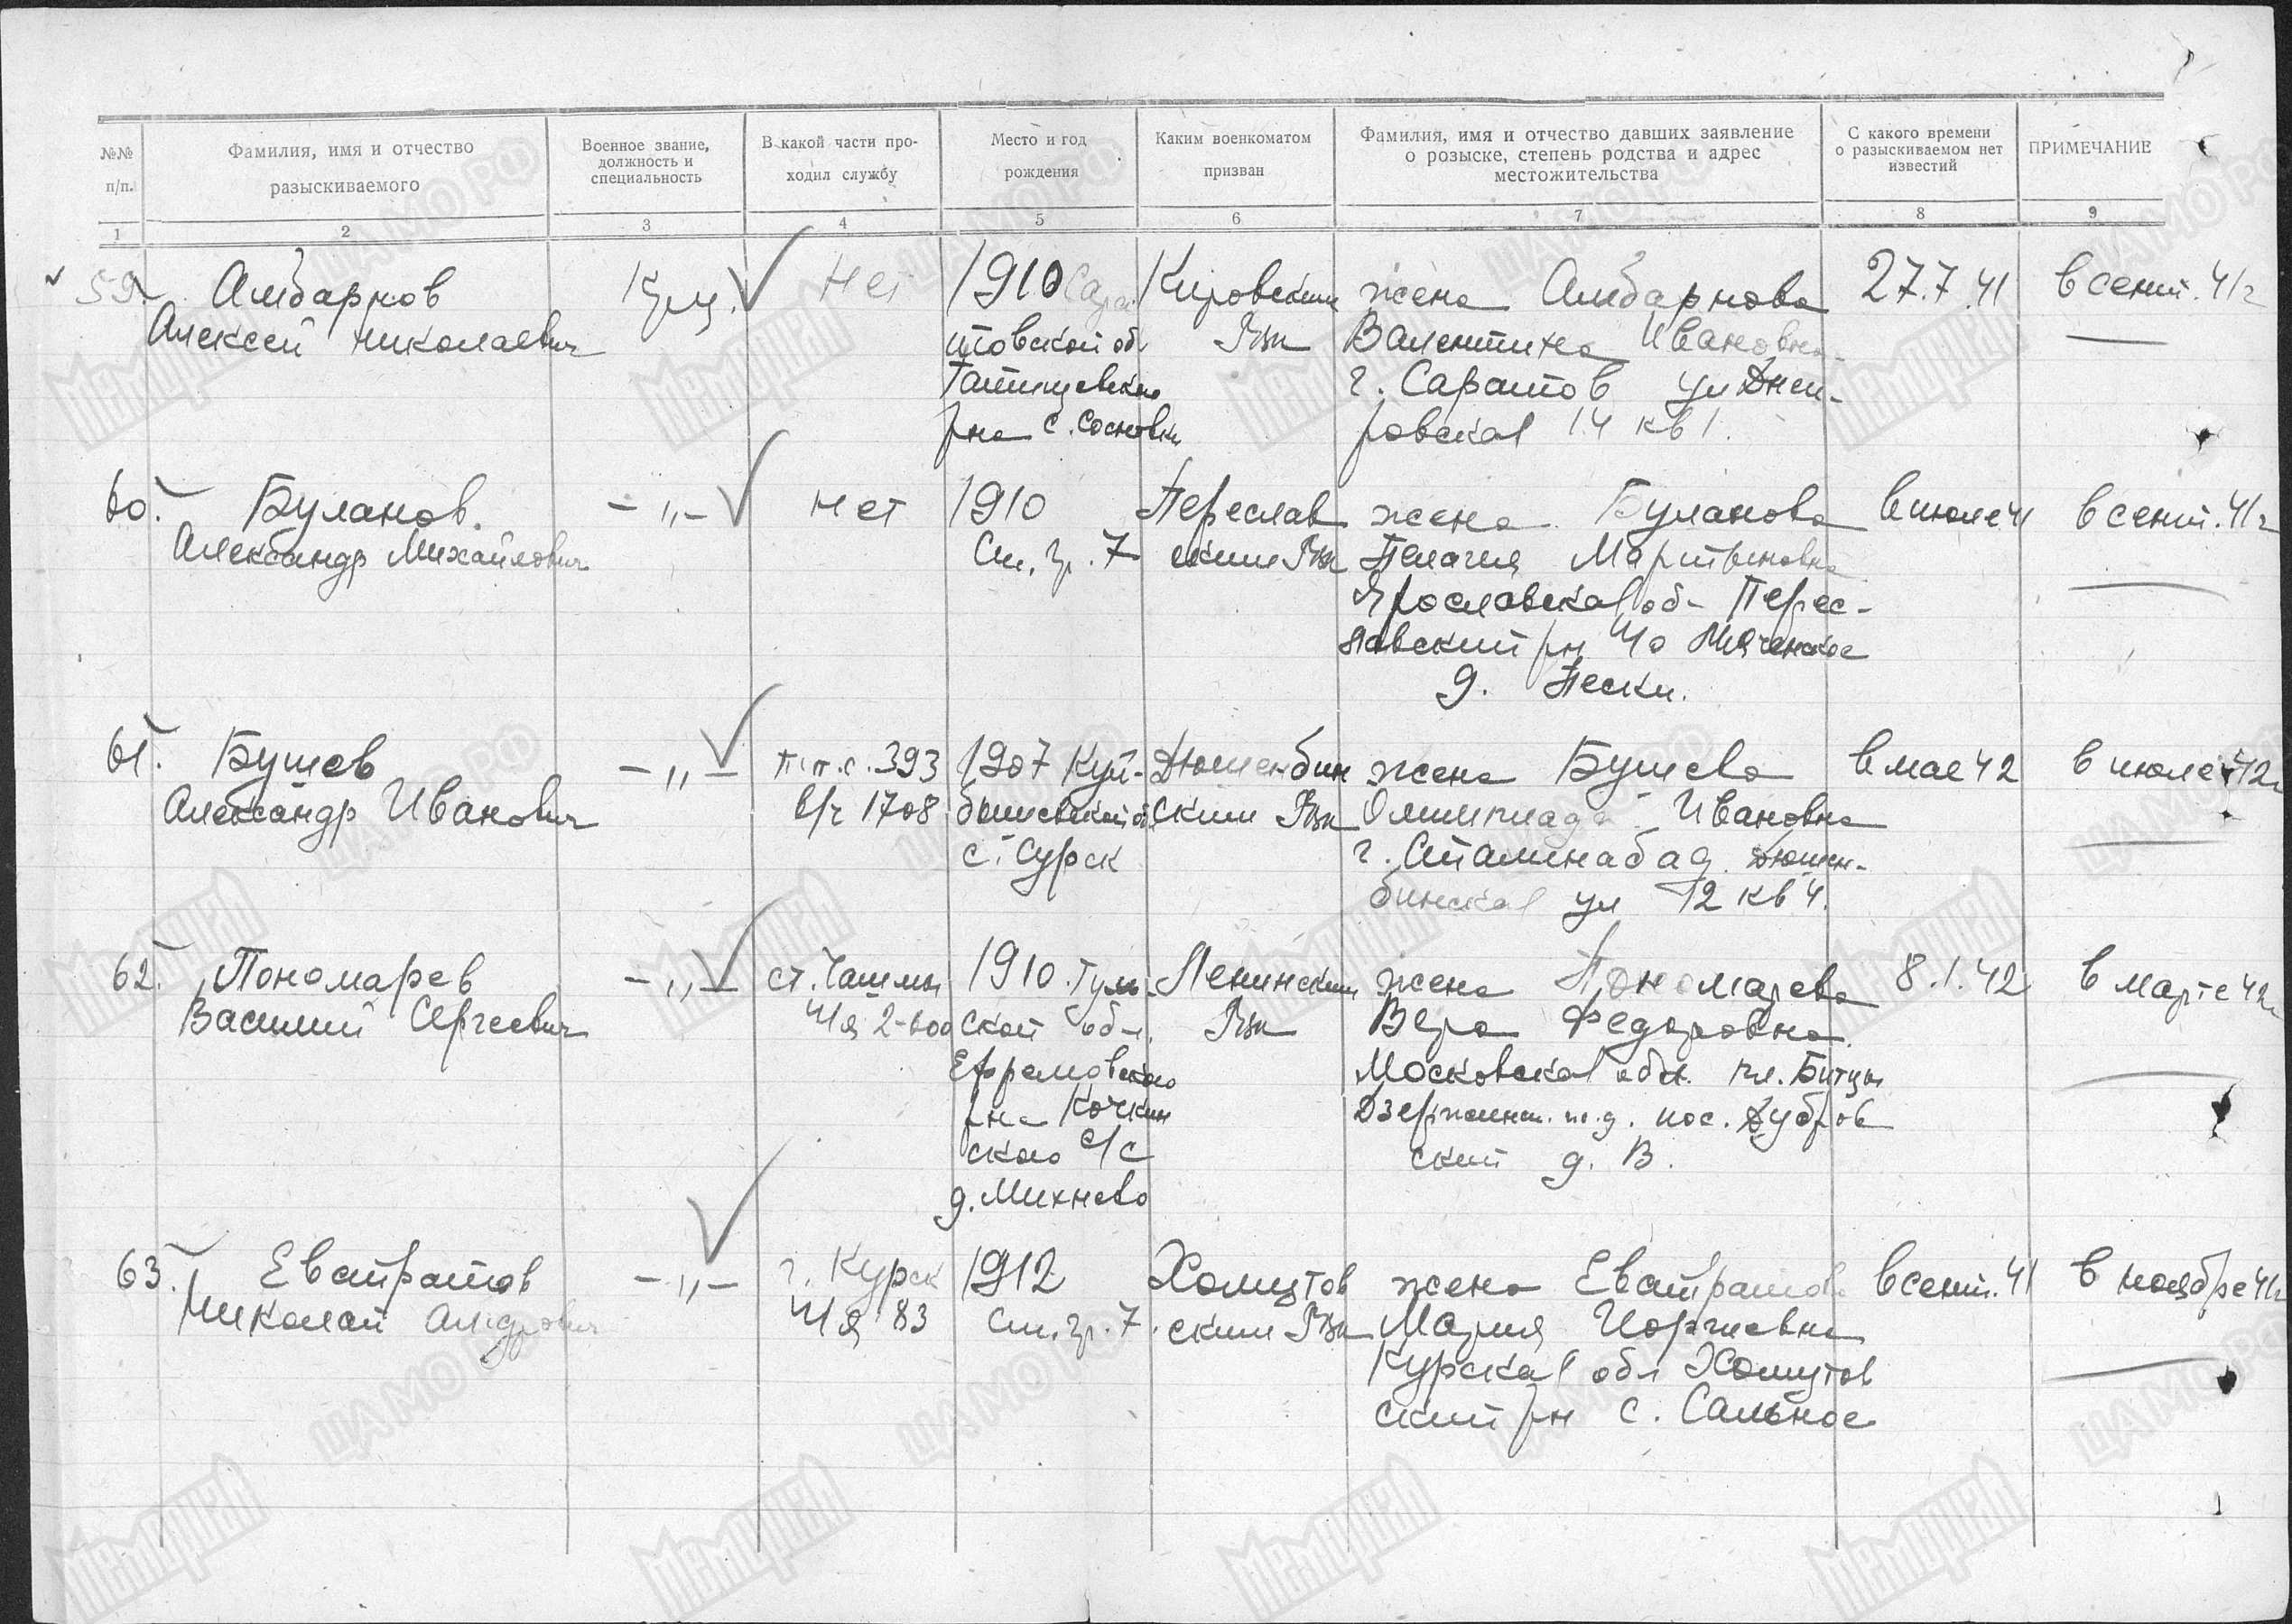 №№ п/п.
Фамилия, имя и отчество разыскиваемого
Военное звание, должность и специальность
В какой части проходил службу
Место и год рождения
Каким военкоматом призван
Фамилия, имя и отчество давших заявление о розыске, степень родства и адрес местожительства
С какого времени о разыскиваемом нет известий
ПРИМЕЧАНИЕ
1 2 3 4 5 6 7 8 9
59 Амбарнов
Алексей Николаевич
Кр-ц.
Нет
1910 Сара
товской об
Татищевского
рна с. Сосновки
Кировским
Рвк
жена Амбарнова
Валентина Ивановна
г. Саратов ул Днеп-
ровская 14 кв 1.
27.7.41
в сент. 41г
60. Буланов.
Александр Михайлович
-„-
Нет
1910
См. гр. 7
Переслав
ским Рвк
жена Буланова
Пелагия Мартыновна
Ярославская об- Перес-
лавский рн
д. Пески.
в июле 41
в сент. 41г
61. Бушев
Александр Иванович
-„-
п.п.с. 393
в/ч 1708
1907 Куй-
бышевской об
с. Сурск
Дюшенбин
ским Рвк
жена Бушева
Олимпиада Ивановна
г. Сталинабад Дюшен-
бинская ул 12 кв 4.
в мае 42
в июле 42г
62. Пономарев
Василий Сергеевич
-„-
ст. Чашмы
П/я 2-600
1910 Туль-
ской обл.
Ефремовского
рна Кочкин
ского с/с
д. Михнево
Ленинским
Рвк
жена Пономарева
Вера Федоровна
Московская обл. пл. Битцы
Дзержинск. ж.д. пос. Дубров
ский д. В.
8.1.42
в марте 42г
63. Евстратов
Николай Алдрович
-„-
г. Курск
П/я 83
1912
См. гр. 7.
Хомутов
ским Рвк
жена Евстратова
Мария Иоргиевна
Курская обл Хомутов
ский рн с. Сальное
в сент. 41
в ноябре 41г
ЦАМО РФ
Мемориал